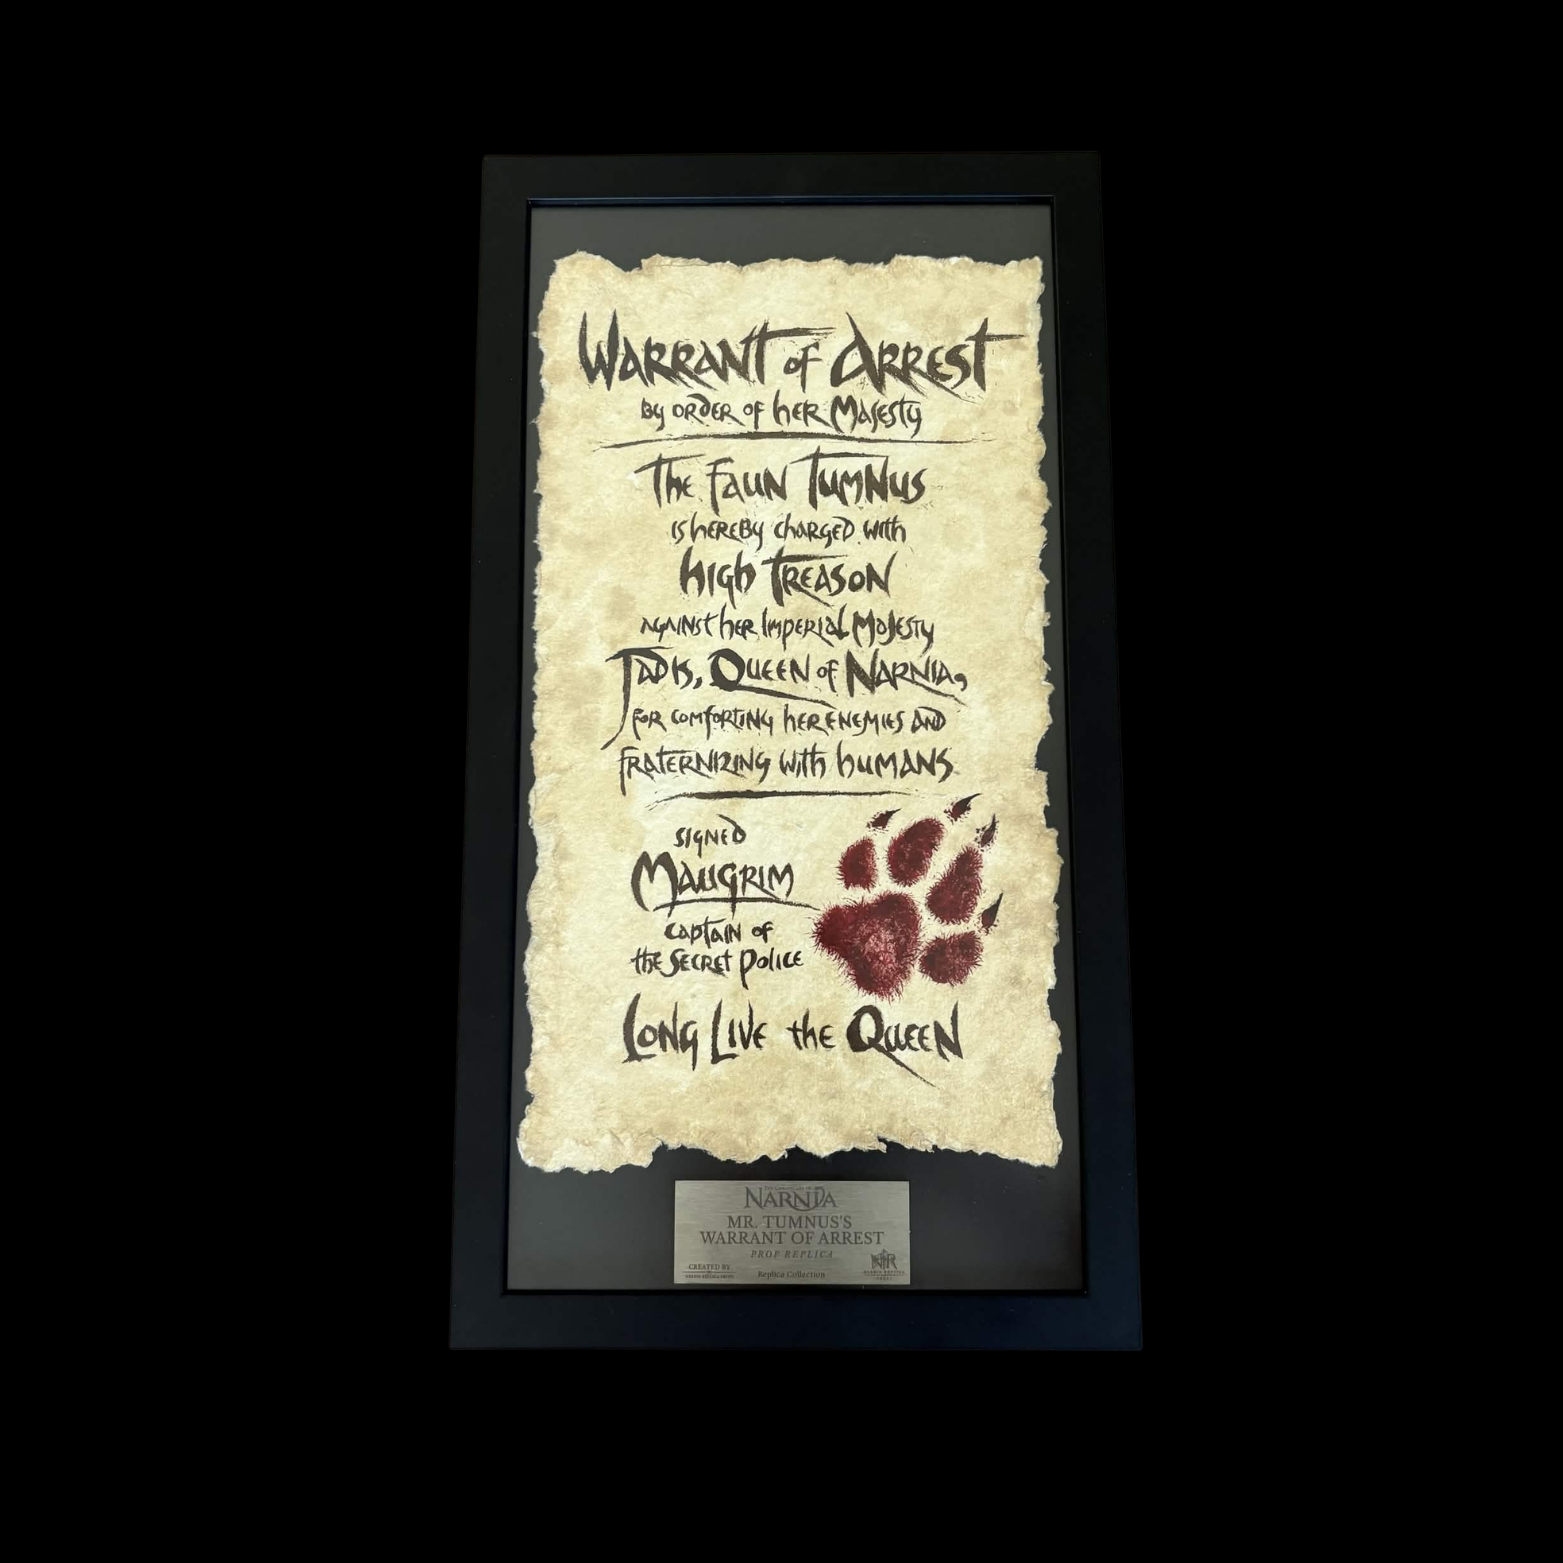 WARRANT OF ARREST
BY ORDER OF HER MAJESTY
THE FAUN TUMNUS
IS HEREBY CHARGED WITH
HIGH TREASON
AGAINST HER IMPERIAL MAJESTY
JADIS, QUEEN OF NARNIA,
FOR COMFORTING HER ENEMIES AND
FRATERNIZING WITH HUMANS
SIGNED
MAUGRIM
CAPTAIN OF
THE SECRET POLICE
LONG LIVE THE QUEEN
NARNIA
MR. TUMNUS'S
WARRANT OF ARREST
PROP REPLICA
CREATED BY
Replica Collection